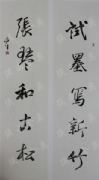 試墨寫新竹
張琴和古松